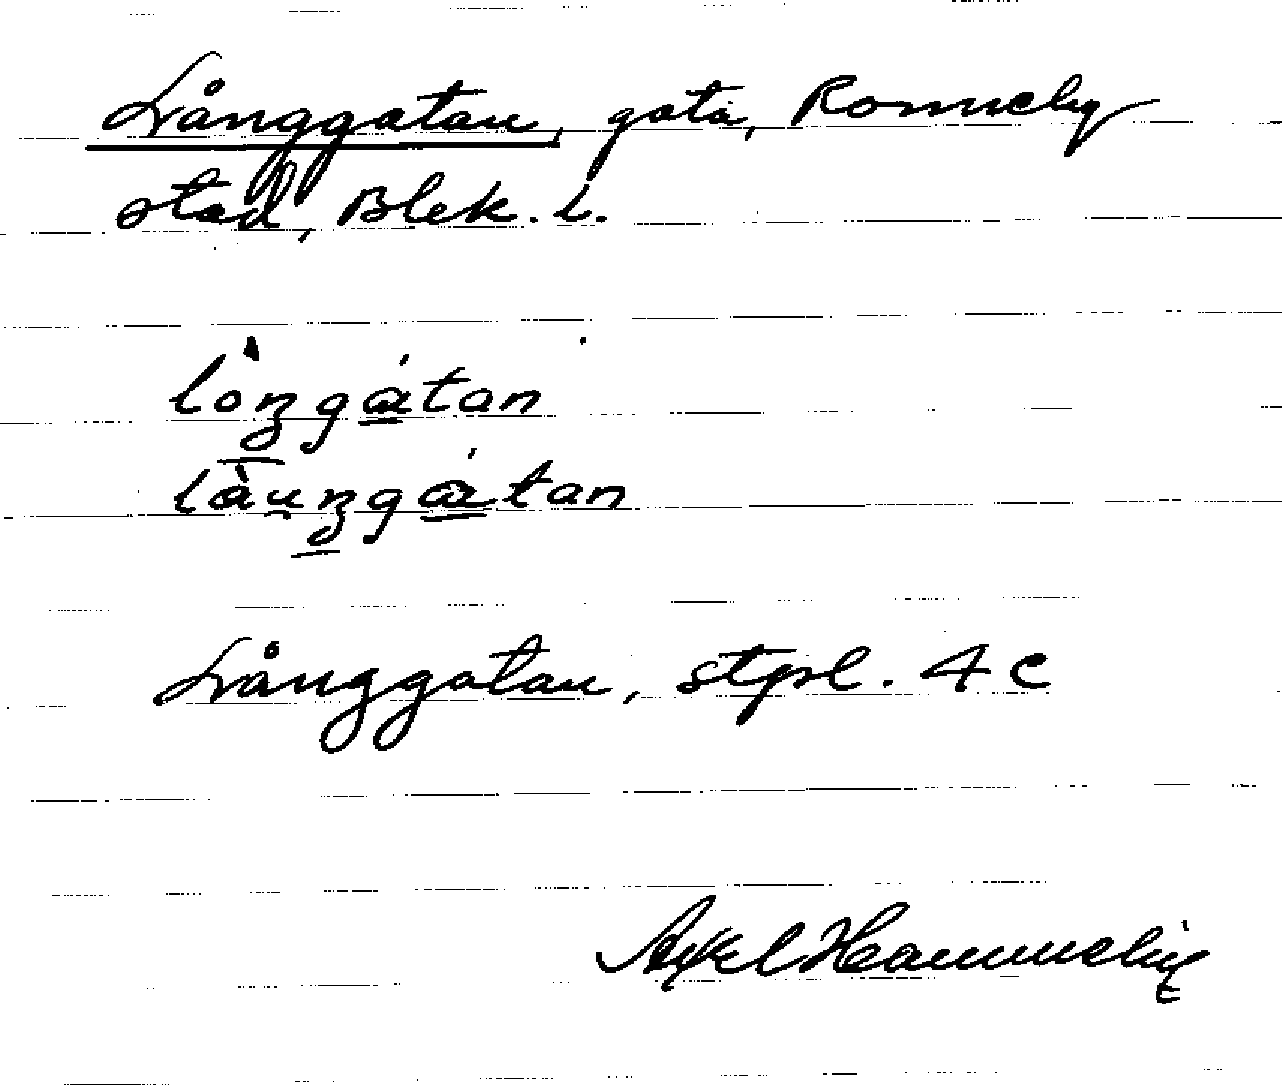 Långgatan, gata, Ronneby
stad, Blek. l.
lòŋgátan
làu̯ŋgátan
Långgatan, stpl. 4 c
Axel